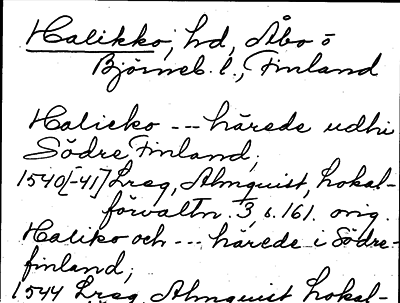 Halikko, hd, Åbo o
Björneb. l., Finland
Halicko --- härede udhi
Södre Finland;
1540[-41] Lreg, Almquist, Lokal-
förvaltn. 3, s. 161. orig.
Haliko och --- härede i Södre-
finland;
1544 Lreg Almquist Lokal-